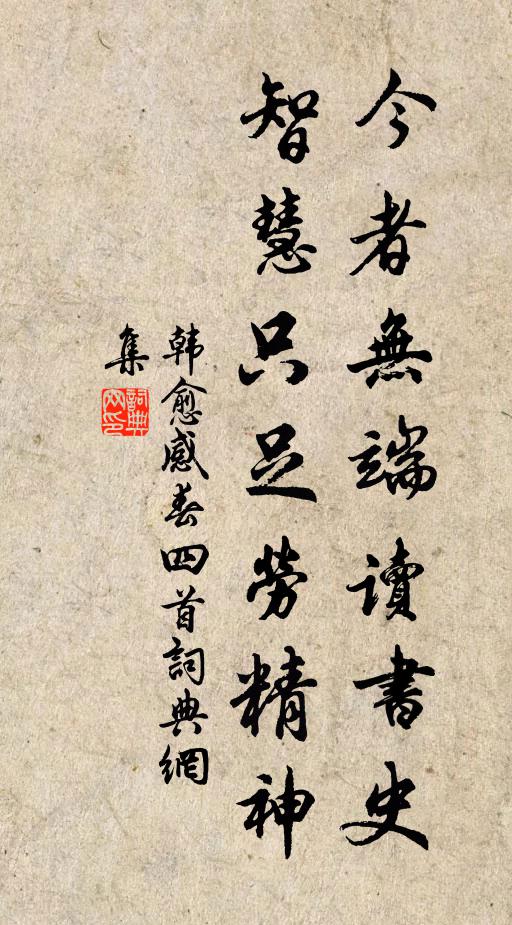 今者無端讀書史
智慧只足勞精神
韩愈感春四首詞典網
集
詞典網印